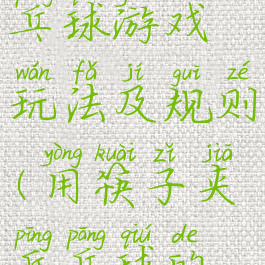 乒球游戏
wán fǎ jí guī zé
玩法及规则
yòng kuài zǐ jiā
(用筷子夹
pīng pāng qiú de